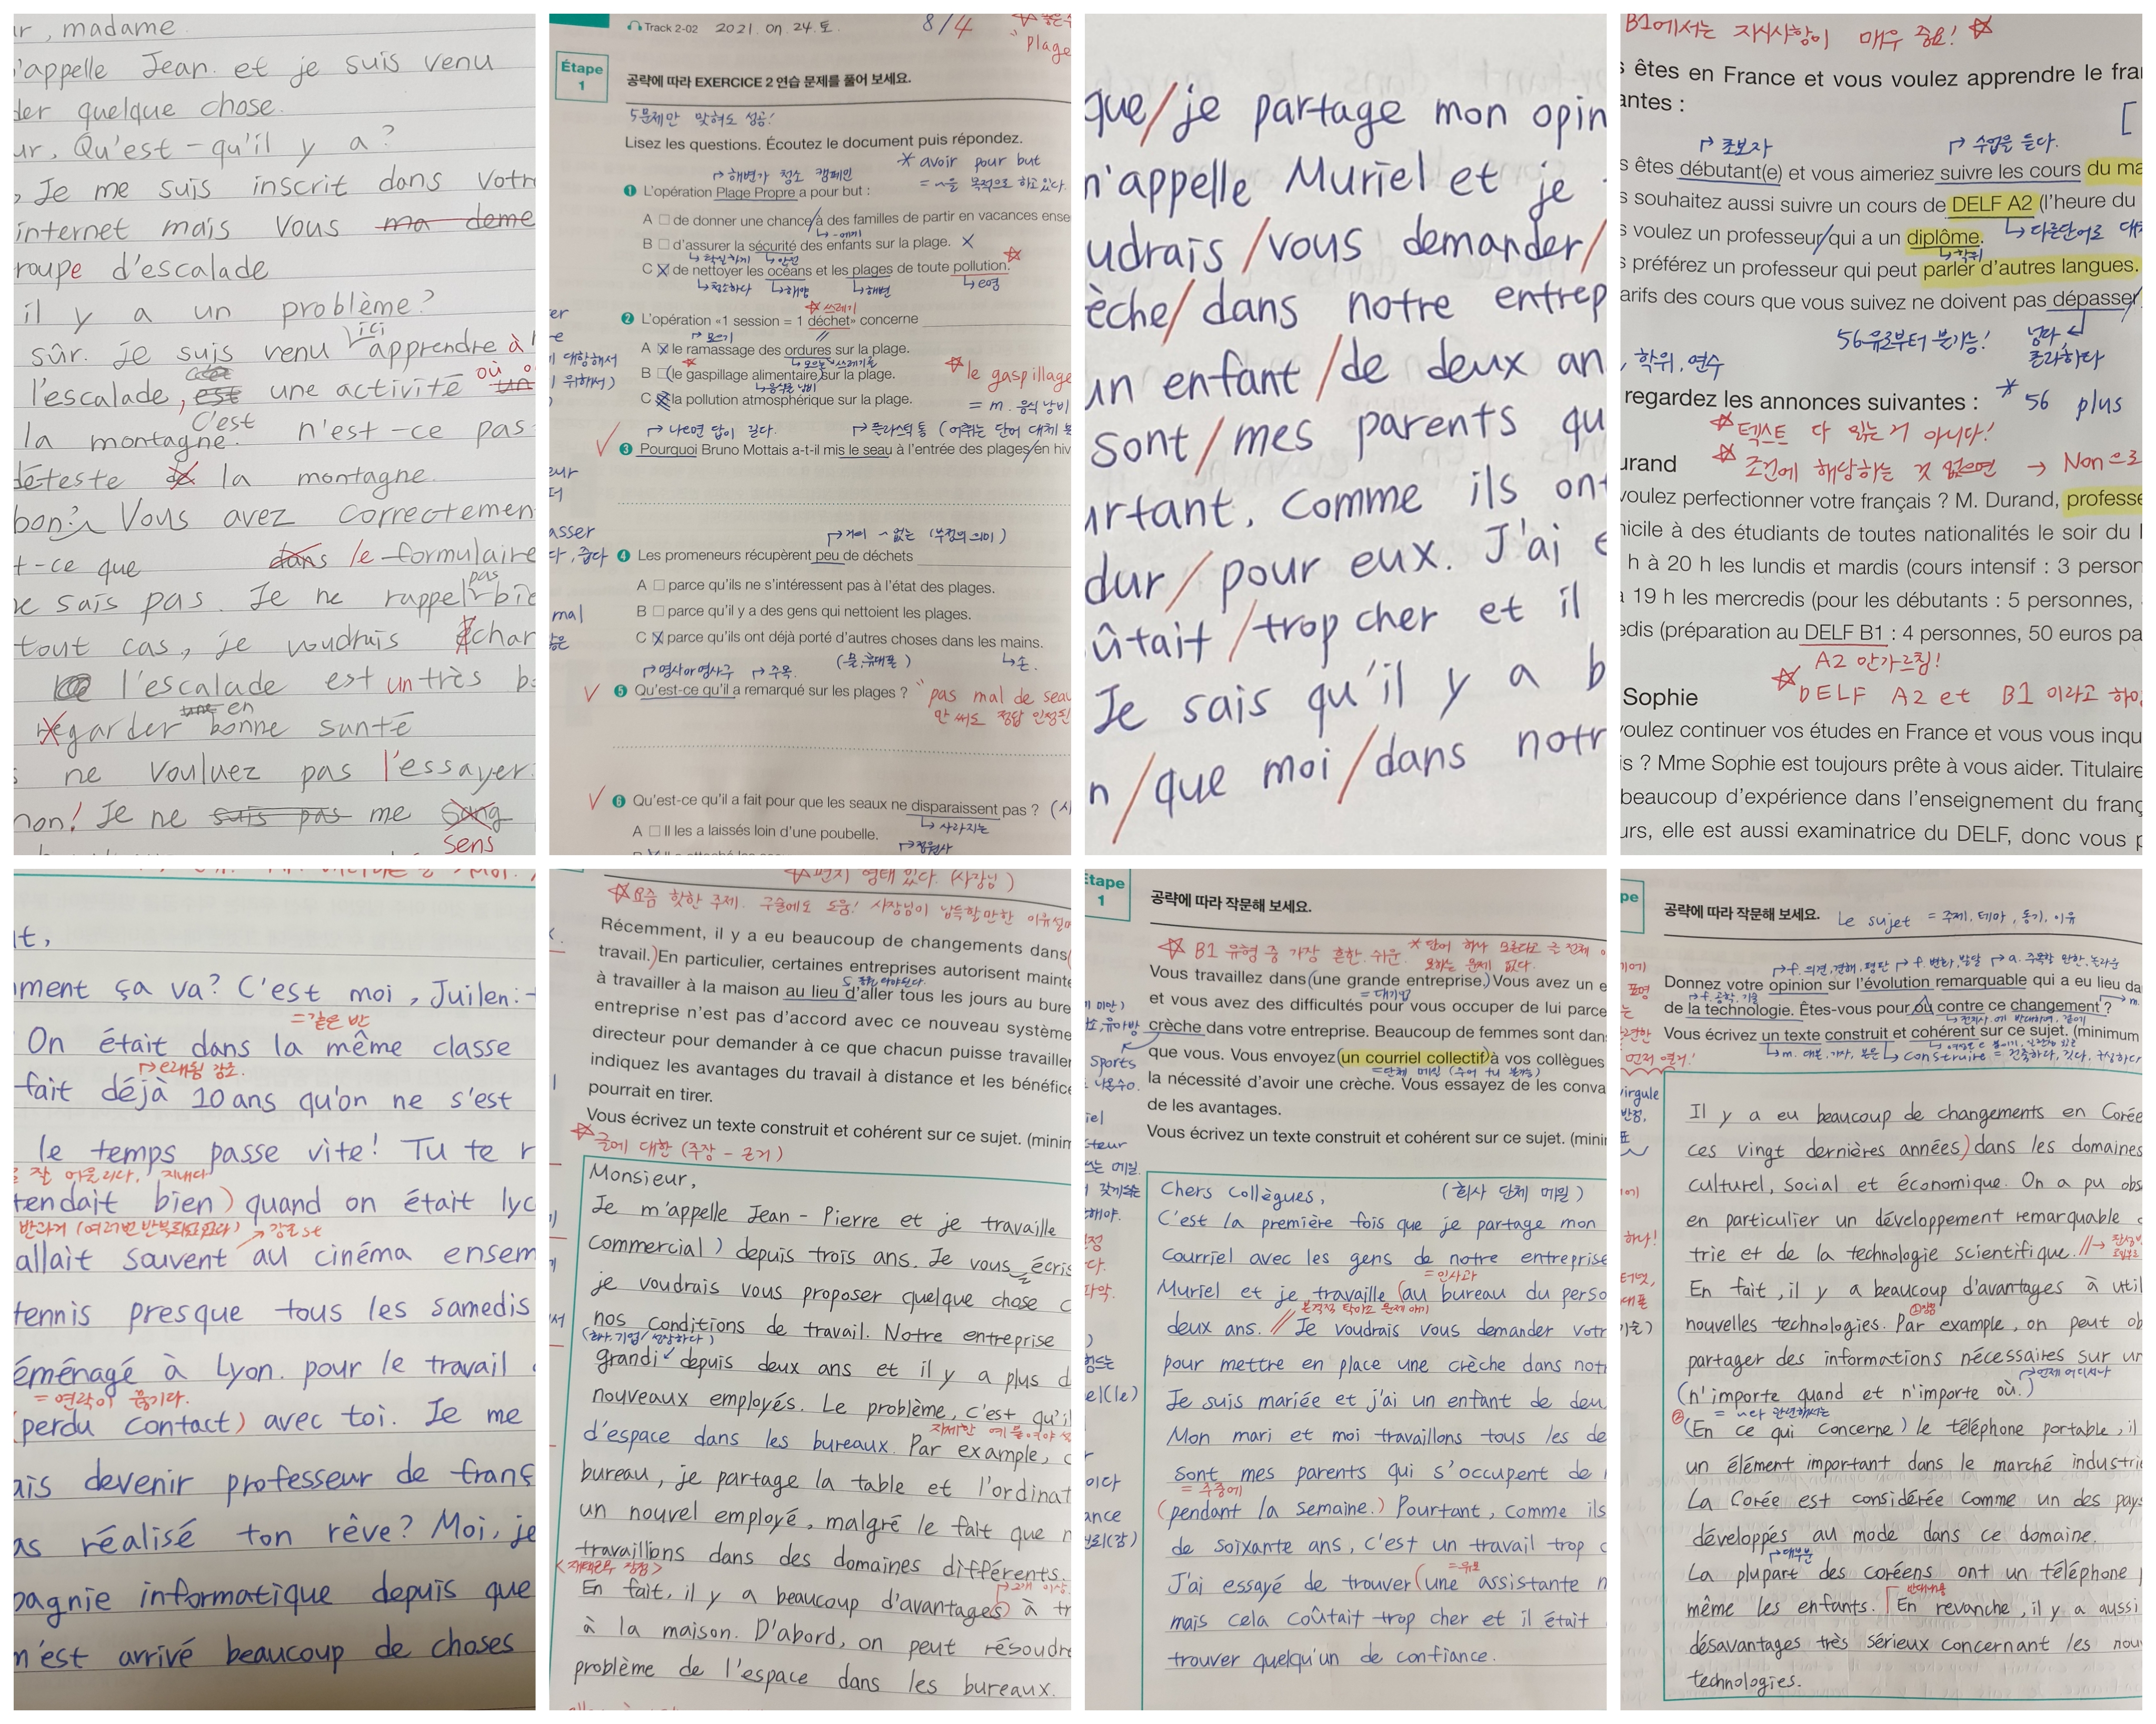 ur, madame
'appelle Jean. et je suis venu
der quelque chose.
ur, Qu'est-qu'il y a?
, Je me suis inscrit dans votr
internet mais vous ma deme
roupe d'escalade
il y a un problème?
sûr. je suis venu ici apprendre à
l'escalade, est une activité où
la montagne. C'est n'est-ce pas
déteste la montagne.
bon? Vous avez correctemen
t-ce que dans le formulaire
e sais pas. Je ne rappel pas bie
tout cas, je voudrais char
l'escalade est un très b
regarder une en bonne santé
ne vouluez pas l'essayer.
non! Je ne sais pas me sang
sens
Track 2-02 2021. 04. 24. 토. 8/4
plage
Étape
1
공략에 따라 EXERCICE 2 연습 문제를 풀어 보세요.
5문제만 맞혀도 성공!
Lisez les questions. Écoutez le document puis répondez.
* avoir pour but
= ~을 목적으로 하고 있다.
해변가 청소 캠페인
1 L'opération Plage Propre a pour but :
A □ de donner une chance/à des familles de partir en vacances ense
~에게
B □ d'assurer la sécurité des enfants sur la plage. X
확실하게 안전
C X de nettoyer les océans et les plages de toute pollution.
청소하다 해양 해변 오염
쓰레기
2 L'opération «1 session = 1 déchet» concerne
모으기
A X le ramassage des ordures sur la plage.
B □ (le gaspillage alimentaire) sur la plage.
음식물 낭비
* le gaspillage
= m. 음식 낭비
C X la pollution atmosphérique sur la plage.
나오면 답이 길다. 플라스틱 통
3 Pourquoi Bruno Mottais a-t-il mis le seau à l'entrée des plages/en hiv
거의 ~없는 (부정의 의미)
4 Les promeneurs récupèrent peu de déchets
A □ parce qu'ils ne s'intéressent pas à l'état des plages.
B □ parce qu'il y a des gens qui nettoient les plages.
C X parce qu'ils ont déjà porté d'autres choses dans les mains.
명사or명사구 주목 손.
5 Qu'est-ce qu'il a remarqué sur les plages ?
"pas mal de seau
안 써도 정답 인정된
6 Qu'est-ce qu'il a fait pour que les seaux ne disparaissent pas ?
사라지는
A □ Il les a laissés loin d'une poubelle.
que/je partage mon opin
m'appelle Muriel et je
udrais /vous demander/
èche/ dans notre entrep
un enfant /de deux an
sont/mes parents qu
urtant, comme ils ont
dur/pour eux. J'ai e
ûtait/trop cher et il
Je sais qu'il y a b
n/que moi/dans notr
B1에서는 지시사항이 매우 중요!
s êtes en France et vous voulez apprendre le fra
antes :
초보자 수업을 듣다.
s êtes débutant(e) et vous aimeriez suivre les cours du ma
s souhaitez aussi suivre un cours de DELF A2 (l'heure du
s voulez un professeur/qui a un diplôme.
다른단어로 대체
학위
s préférez un professeur qui peut parler d'autres langues.
arifs des cours que vous suivez ne doivent pas dépasser
56유로부터 불가능! 넘다
초과하다
, 학위, 연수
regardez les annonces suivantes : * 56 plus
텍스트 다 읽는거 아니다!
urand 조건에 해당하는 것 없으면 → Non으로
voulez perfectionner votre français ? M. Durand, professe
nicile à des étudiants de toutes nationalités le soir du l
h à 20 h les lundis et mardis (cours intensif : 3 person
à 19 h les mercredis (pour les débutants : 5 personnes,
edis (préparation au DELF B1 : 4 personnes, 50 euros pa
A2 안가르침!
DELF A2 et B1 이라고 하
Sophie
voulez continuer vos études en France et vous vous inqu
is ? Mme Sophie est toujours prête à vous aider. Titulaire
beaucoup d'expérience dans l'enseignement du franç
urs, elle est aussi examinatrice du DELF, donc vous p
t,
mment ça va? C'est moi, Juilen:
= 같은 반
On était dans la même classe
오래됨 강조.
fait déjà 10 ans qu'on ne s'est
le temps passe vite! Tu te r
잘 어울리다, 지내다
tendait bien) quand on était lyc
allait souvent au cinéma ensem
tennis presque tous les samedis
éménagé à Lyon. pour le travail
= 연락이 끊기다.
(perdu contact) avec toi. Je me
ais devenir professeur de franç
as réalisé ton rêve? Moi, je
pagnie informatique depuis que
m'est arrivé beaucoup de choses
편지 형태 있다. (사장님)
요즘 핫한 주제. 구술에도 도움! 사장님이 납득할만한 이유
Récemment, il y a eu beaucoup de changements dans
travail.) En particulier, certaines entreprises autorisent mainte
à travailler à la maison au lieu d'aller tous les jours au bure
entreprise n'est pas d'accord avec ce nouveau système
directeur pour demander à ce que chacun puisse travailler
indiquez les avantages du travail à distance et les bénéfice
pourrait en tirer.
Vous écrivez un texte construit et cohérent sur ce sujet. (minim
글에 대한 (주장 - 근거)
Monsieur,
Je m'appelle Jean-Pierre et je travaille
commercial) depuis trois ans. Je vous écris
je voudrais vous proposer quelque chose c
nos conditions de travail. Notre entreprise
grandi depuis deux ans et il y a plus d
nouveaux employés. Le problème, c'est qu'il
d'espace dans les bureaux. Par example, c
bureau, je partage la table et l'ordinat
un nouvel employé, malgré le fait que n
travaillions dans des domaines différents.
<재택근무 장점>
En fait, il y a beaucoup d'avantages) à tr
à la maison. D'abord, on peut résoudre
problème de l'espace dans les bureaux.
Étape
1
공략에 따라 작문해 보세요.
B1 유형 중 가장 흔한, 쉬운
Vous travaillez dans (une grande entreprise.) Vous avez un e
= 대기업
et vous avez des difficultés pour vous occuper de lui parce
crèche dans votre entreprise. Beaucoup de femmes sont dan
que vous. Vous envoyez (un courriel collectif) à vos collègues
la nécessité d'avoir une crèche. Vous essayez de les conva
de les avantages.
Vous écrivez un texte construit et cohérent sur ce sujet. (mini
Chers Collègues, (회사 단체 메일)
C'est la première fois que je partage mon
courriel avec les gens de notre entreprise
= 인사과
Muriel et je travaille (au bureau du perso
deux ans. // Je voudrais vous demander votr
pour mettre en place une crèche dans notr
Je suis mariée et j'ai un enfant de deu
Mon mari et moi travaillons tous les de
sont mes parents qui s'occupent de
= 주중에
(pendant la semaine.) Pourtant, comme ils
de soixante ans, c'est un travail trop d
J'ai essayé de trouver (une assistante m
mais cela coûtait trop cher et il était
trouver quelqu'un de confiance.
pe
공략에 따라 작문해 보세요. Le sujet = 주제, 테마, 동기, 이유
f. 의견, 견해, 평판 f. 변화, 발달 a. 주목할 만한, 놀라운
Donnez votre opinion sur l'évolution remarquable qui a eu lieu da
f. 공학, 기술
de la technologie. Êtes-vous pour ou contre ce changement ?
Vous écrivez un texte construit et cohérent sur ce sujet. (minimum
construire = 건축하다, 짓다, 구성하다
Il y a eu beaucoup de changements en Corée
ces vingt dernières années) dans les domaines
culturel, social et économique. On a pu obs
en particulier un développement remarquable
trie et de la technologie scientifique. //
En fait, il y a beaucoup d'avantages à util
nouvelles technologies. Par example, on peut ob
partager des informations nécessaires sur un
언제 어디서나
(n'importe quand et n'importe où.)
(En ce qui concerne) le téléphone portable, il
un élément important dans le marché industrie
La Corée est considérée comme un des pays
développés au mode dans ce domaine.
대부분
La plupart des coréens ont un téléphone
même les enfants. En revanche, il y a aussi
désavantages très sérieux concernant les nou
technologies.